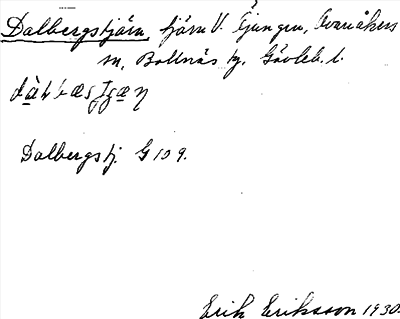 Dalbergstjärn, tjärn V. Tjungen, Ovanåkers
sn, Bollnäs tg. Gävleb. l.
Dalbergstj. G 10 9.
Erik Eriksson 1930.